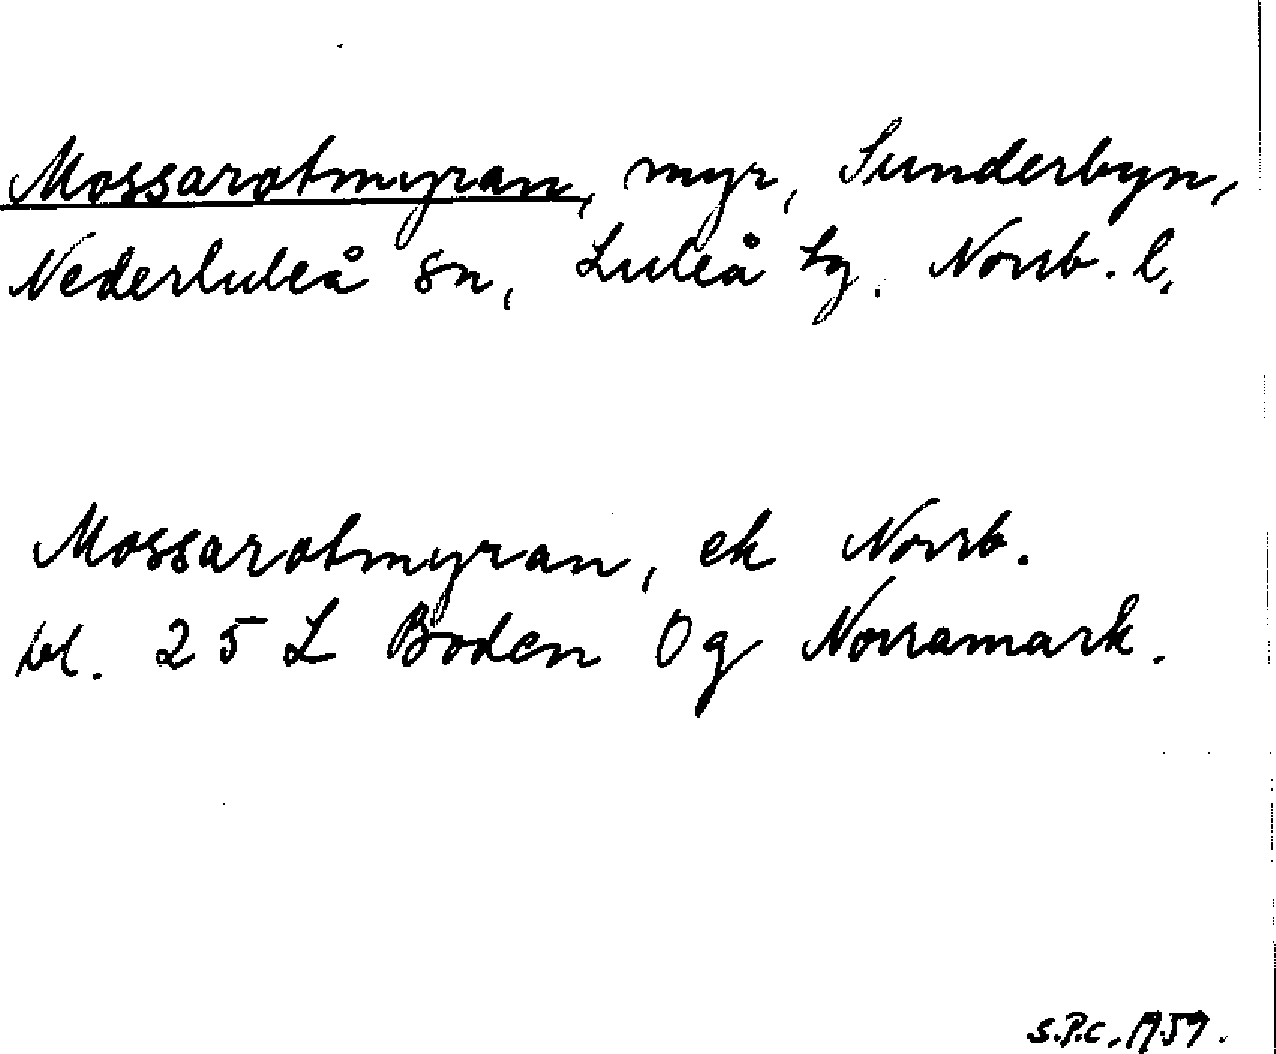 Mossarotmyran, myr, Sunderbyn,
Nederluleå sn, Luleå tg. Norrb. l.
Mossarotmyran, ek Norrb.
bl. 25 L Boden 0 g Norramark.
S.P.C. 1959.